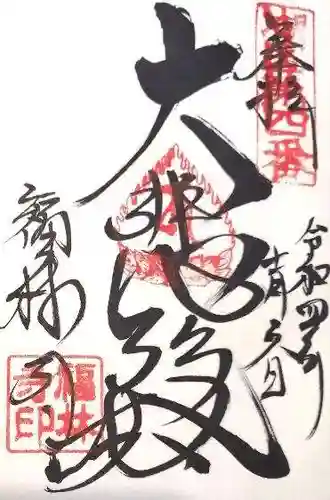 奉拝
四番
大悲殿
令和四年
福林寺
福林寺印